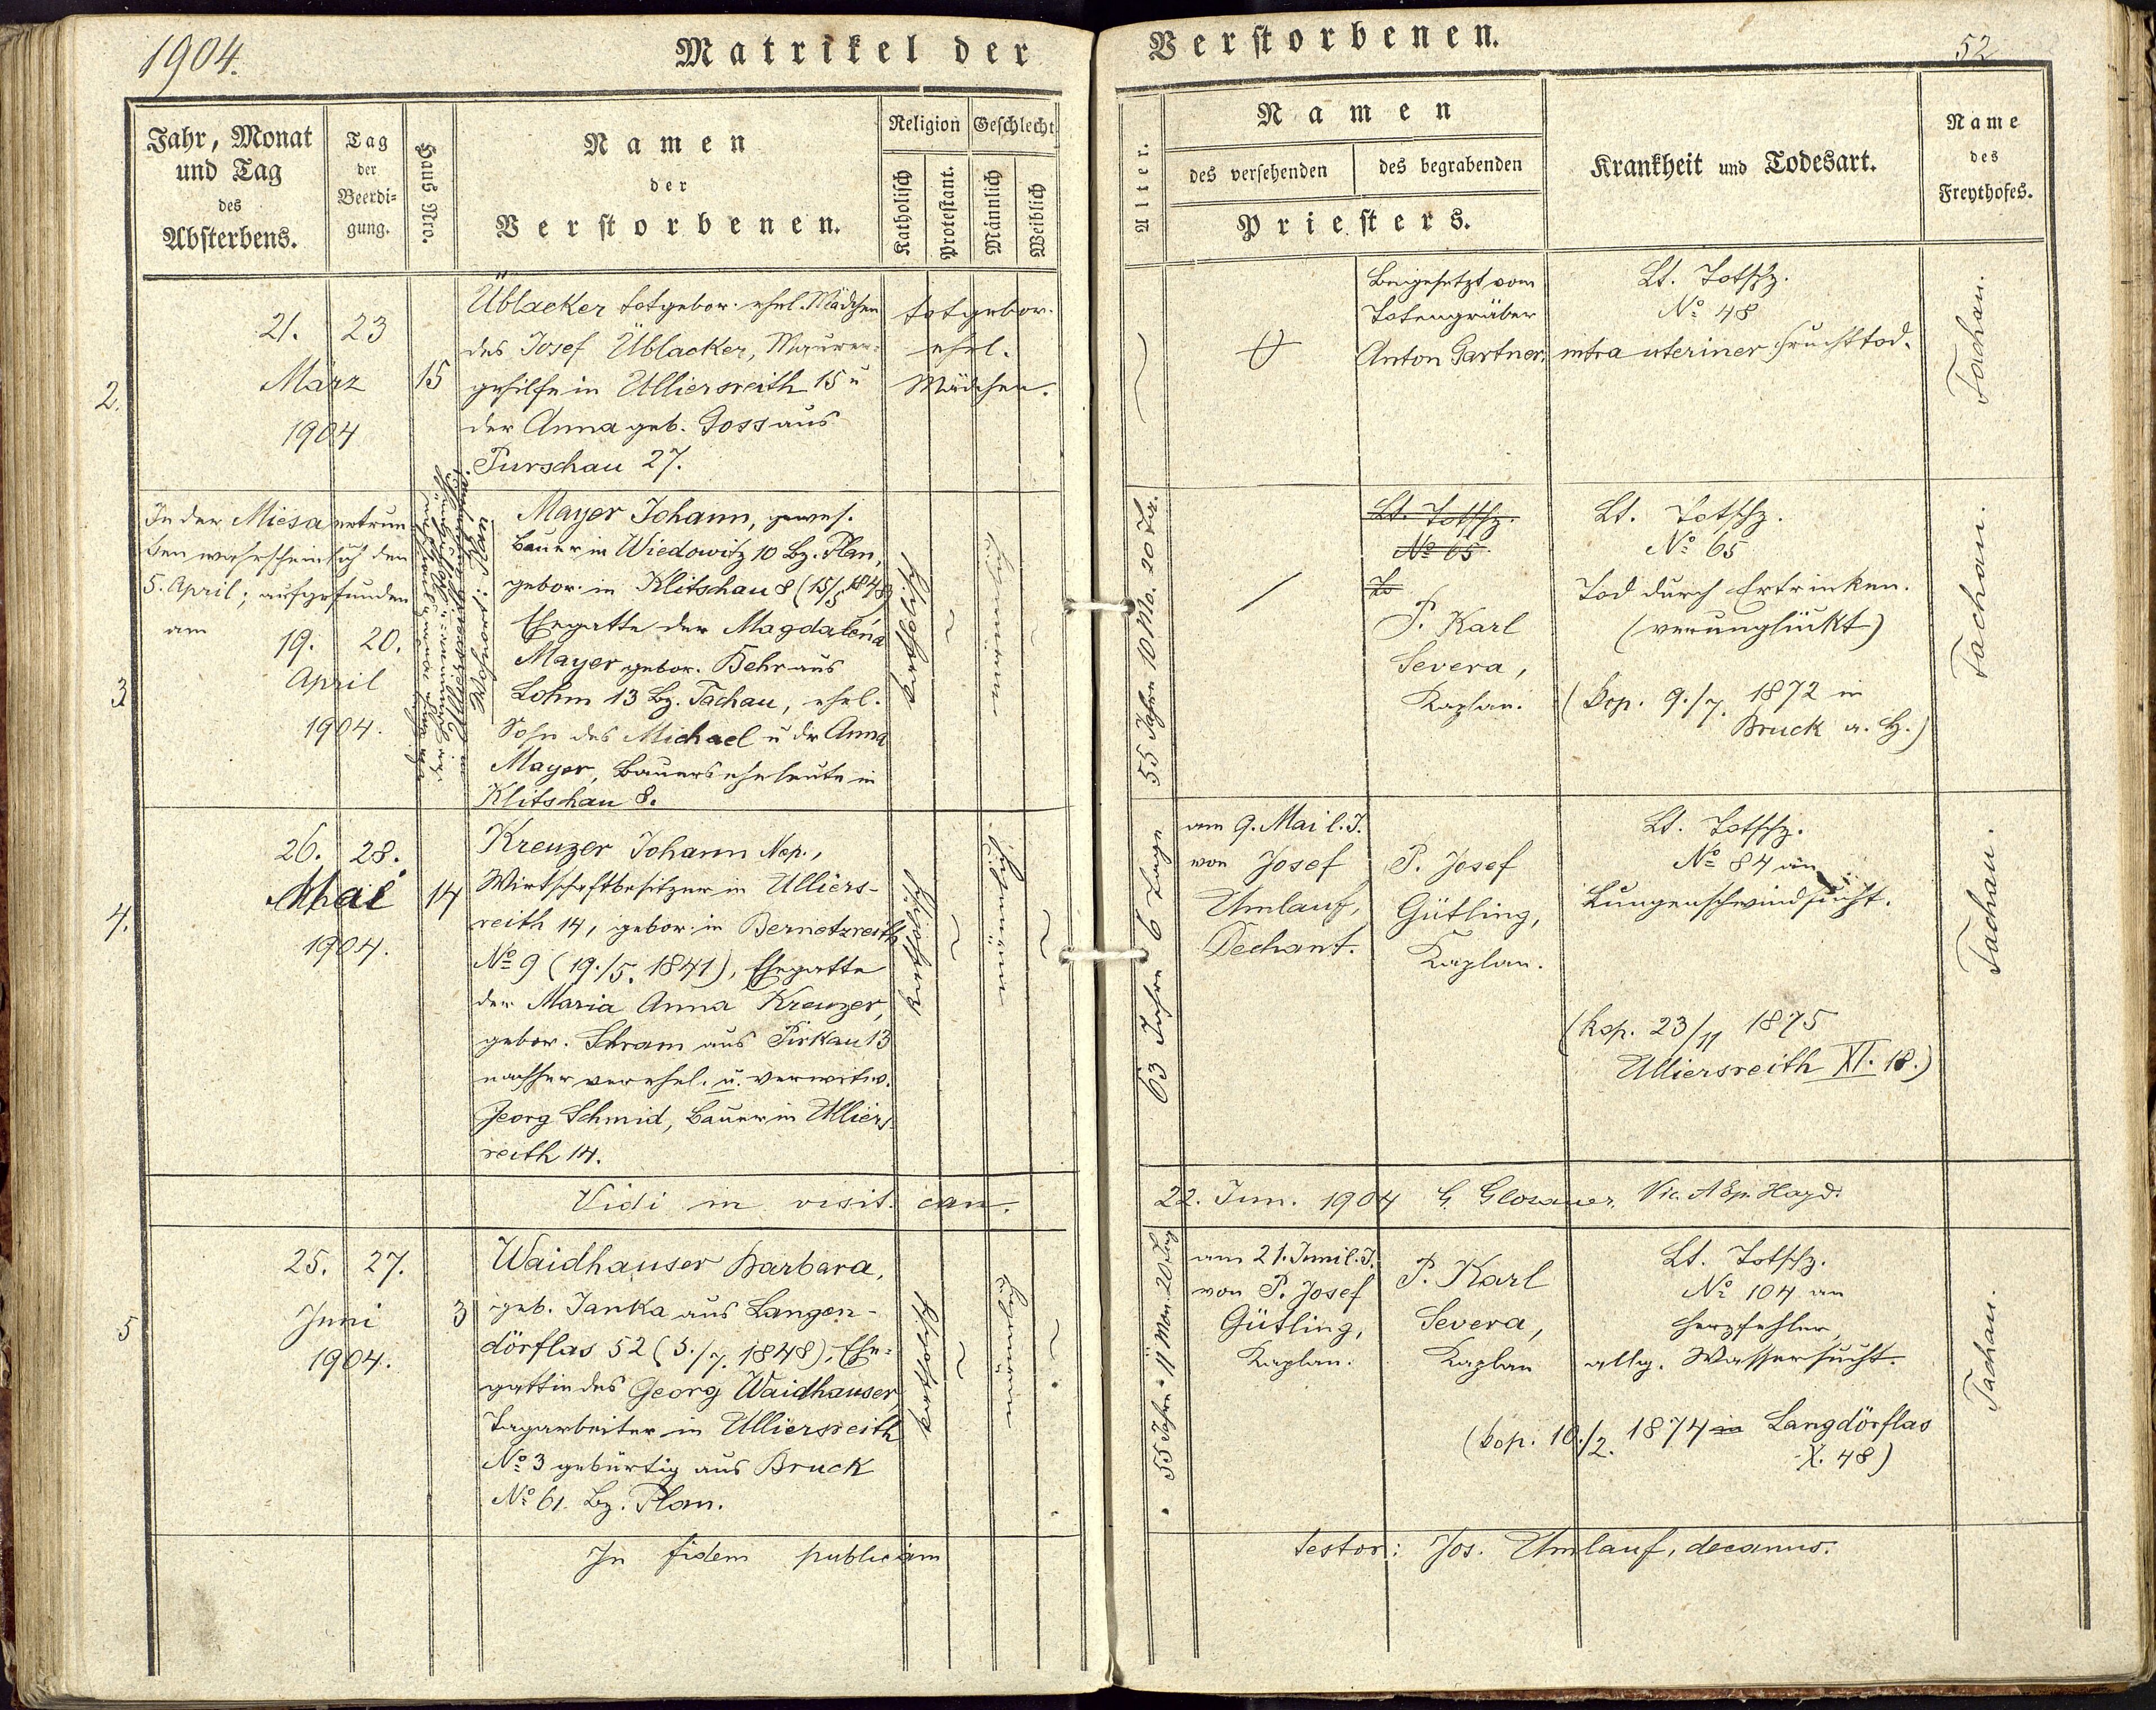 1904.
Matrikel der
Verstorbenen.
52
Jahr, Monat
und Tag
des
Absterbens.
Tag
der
Beerdi-
gung.
Hauß Nro.
Namen
der
Verstorbenen.
Religion
Katholisch
Protestant.
Geschlecht
Männlich
Weiblich
Alter.
Namen
des versehenden
des begrabenden
Priesters.
Krankheit und Todesart.
Name
des
Freythofes.
2.
21.
März
1904
23
15
Üblacker totgebor. ehel. Mädchen
des Josef Üblacker, Maurer-
gehilfe in Ulliersreith 15 u
der Anna geb. Goss aus
Purschau 27.
totgebor.
ehel.
Mädchen.
Beigesetzt vom
Totengräber
Anton Gartner.
Lt. Totschz.
No 48
intra uteriner Fruchttod.
Tachau.
3
In der Miesa ertrun
ken wahrscheinlich den
5. April; aufgefunden
am
19.
April
1904.
20.
Wohnort: Plan
Mayer Johann, gewes.
Bauer in Wiedowitz 10 Bz. Plan,
gebor. in Klitschau 8 (15/5 1848)
Ehegatte der Magdalena
Mayer gebor. Behr aus
Lohm 13 Bz. Tachau, ehel.
Sohn des Michael u der Anna
Mayer, Bauerseheleute in
Klitschau 8.
katholisch
55 Jahre 10 Mo. 20 Tg.
Lt. Totschz.
No 65.
To
P. Karl
Severa,
Kaplan.
Lt. Totschz.
No 65
Tod durch Ertrinken.
(verunglückt)
(Kop. 9./7. 1872 in
Bruck a. H.)
Tachau.
4.
26.
Mai
1904.
28.
14
Kreuzer Johann Nep.,
Wirtschaftbesitzer in Ulliers-
reith 14, gebor. in Bernetzreith
No 9 (19./5. 1841), Ehegatte
der Maria Anna Kreuzer,
gebor. Schram aus Pirkau 13
nachher verehel. u. verwitw.
Georg Schmid, Bauer in Ulliers
reith 14.
katholisch
63 Jahre 6 Tage
am 9. Mai l. J.
von Josef
Umlauf,
Dechant.
P. Josef
Gütling,
Kaplan.
Lt. Totschz.
No 84 an
Lungenschwindsucht.
(kop. 23/11 1875
Ulliersreith XI. 18.)
Tachau.
Vidi in visit. can.
22. Jun. 1904
5
25.
Juni
1904.
27.
3
Waidhauser Barbara,
geb. Janka aus Langen-
dörflas 52 (5./7. 1848), Ehe-
gattin des Georg Waidhauser,
Tagarbeiter in Ulliersreith
No 3 gebürtig aus Bruck
No 61. Bz. Plan.
katholisch
55 Jahre 11 Mon. 20 Tag
am 21. Juni l. J.
von P. Josef
Gütling,
Kaplan.
P. Karl
Severa,
Kaplan
Lt. Totschz.
No 104 an
Herzfehler,
allg. Wassersucht.
(kop. 10./2. 1874 in Langdörflas
X. 48)
Tachau.
In fidem publicam
testor: Jos. Umlauf, decanus.